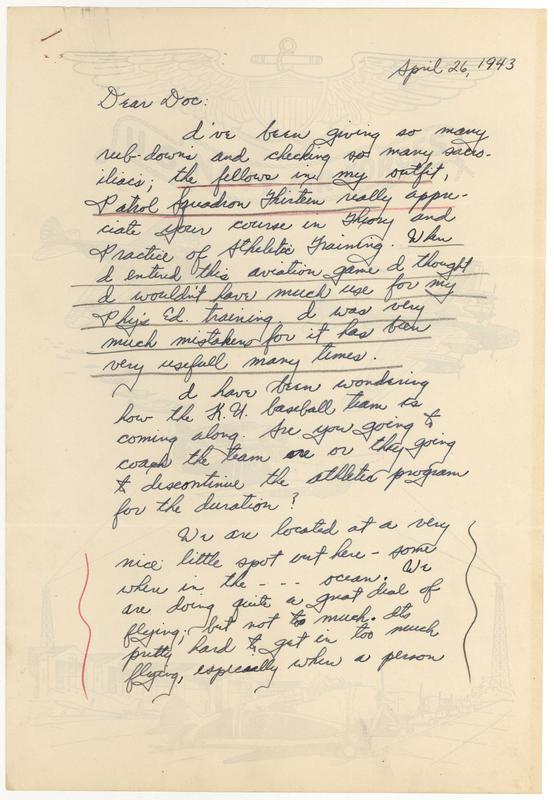 April 26, 1943
Dear Doc:
I've been giving so many
rub-downs and checking so many sacro-
iliacs; the fellows in my outfit,
Patrol Squadron Thirteen really appre-
ciate your course in Theory and
Practice of Athletic Training. When
I entered this aviation game I thought
I wouldn't have much use for my
Phys Ed. training. I was very
much mistaken for it has been
very usefull many times.
I have been wondering
how the K.U. baseball team is
coming along. Are you going to
coach the team or are they going
to discontinue the athletic program
for the duration?
We are located at a very
nice little spot out here - some
where in the - - - ocean. We
are doing quite a great deal of
flying; but not too much. Its
pretty hard to get in too much
flying, especially when a person